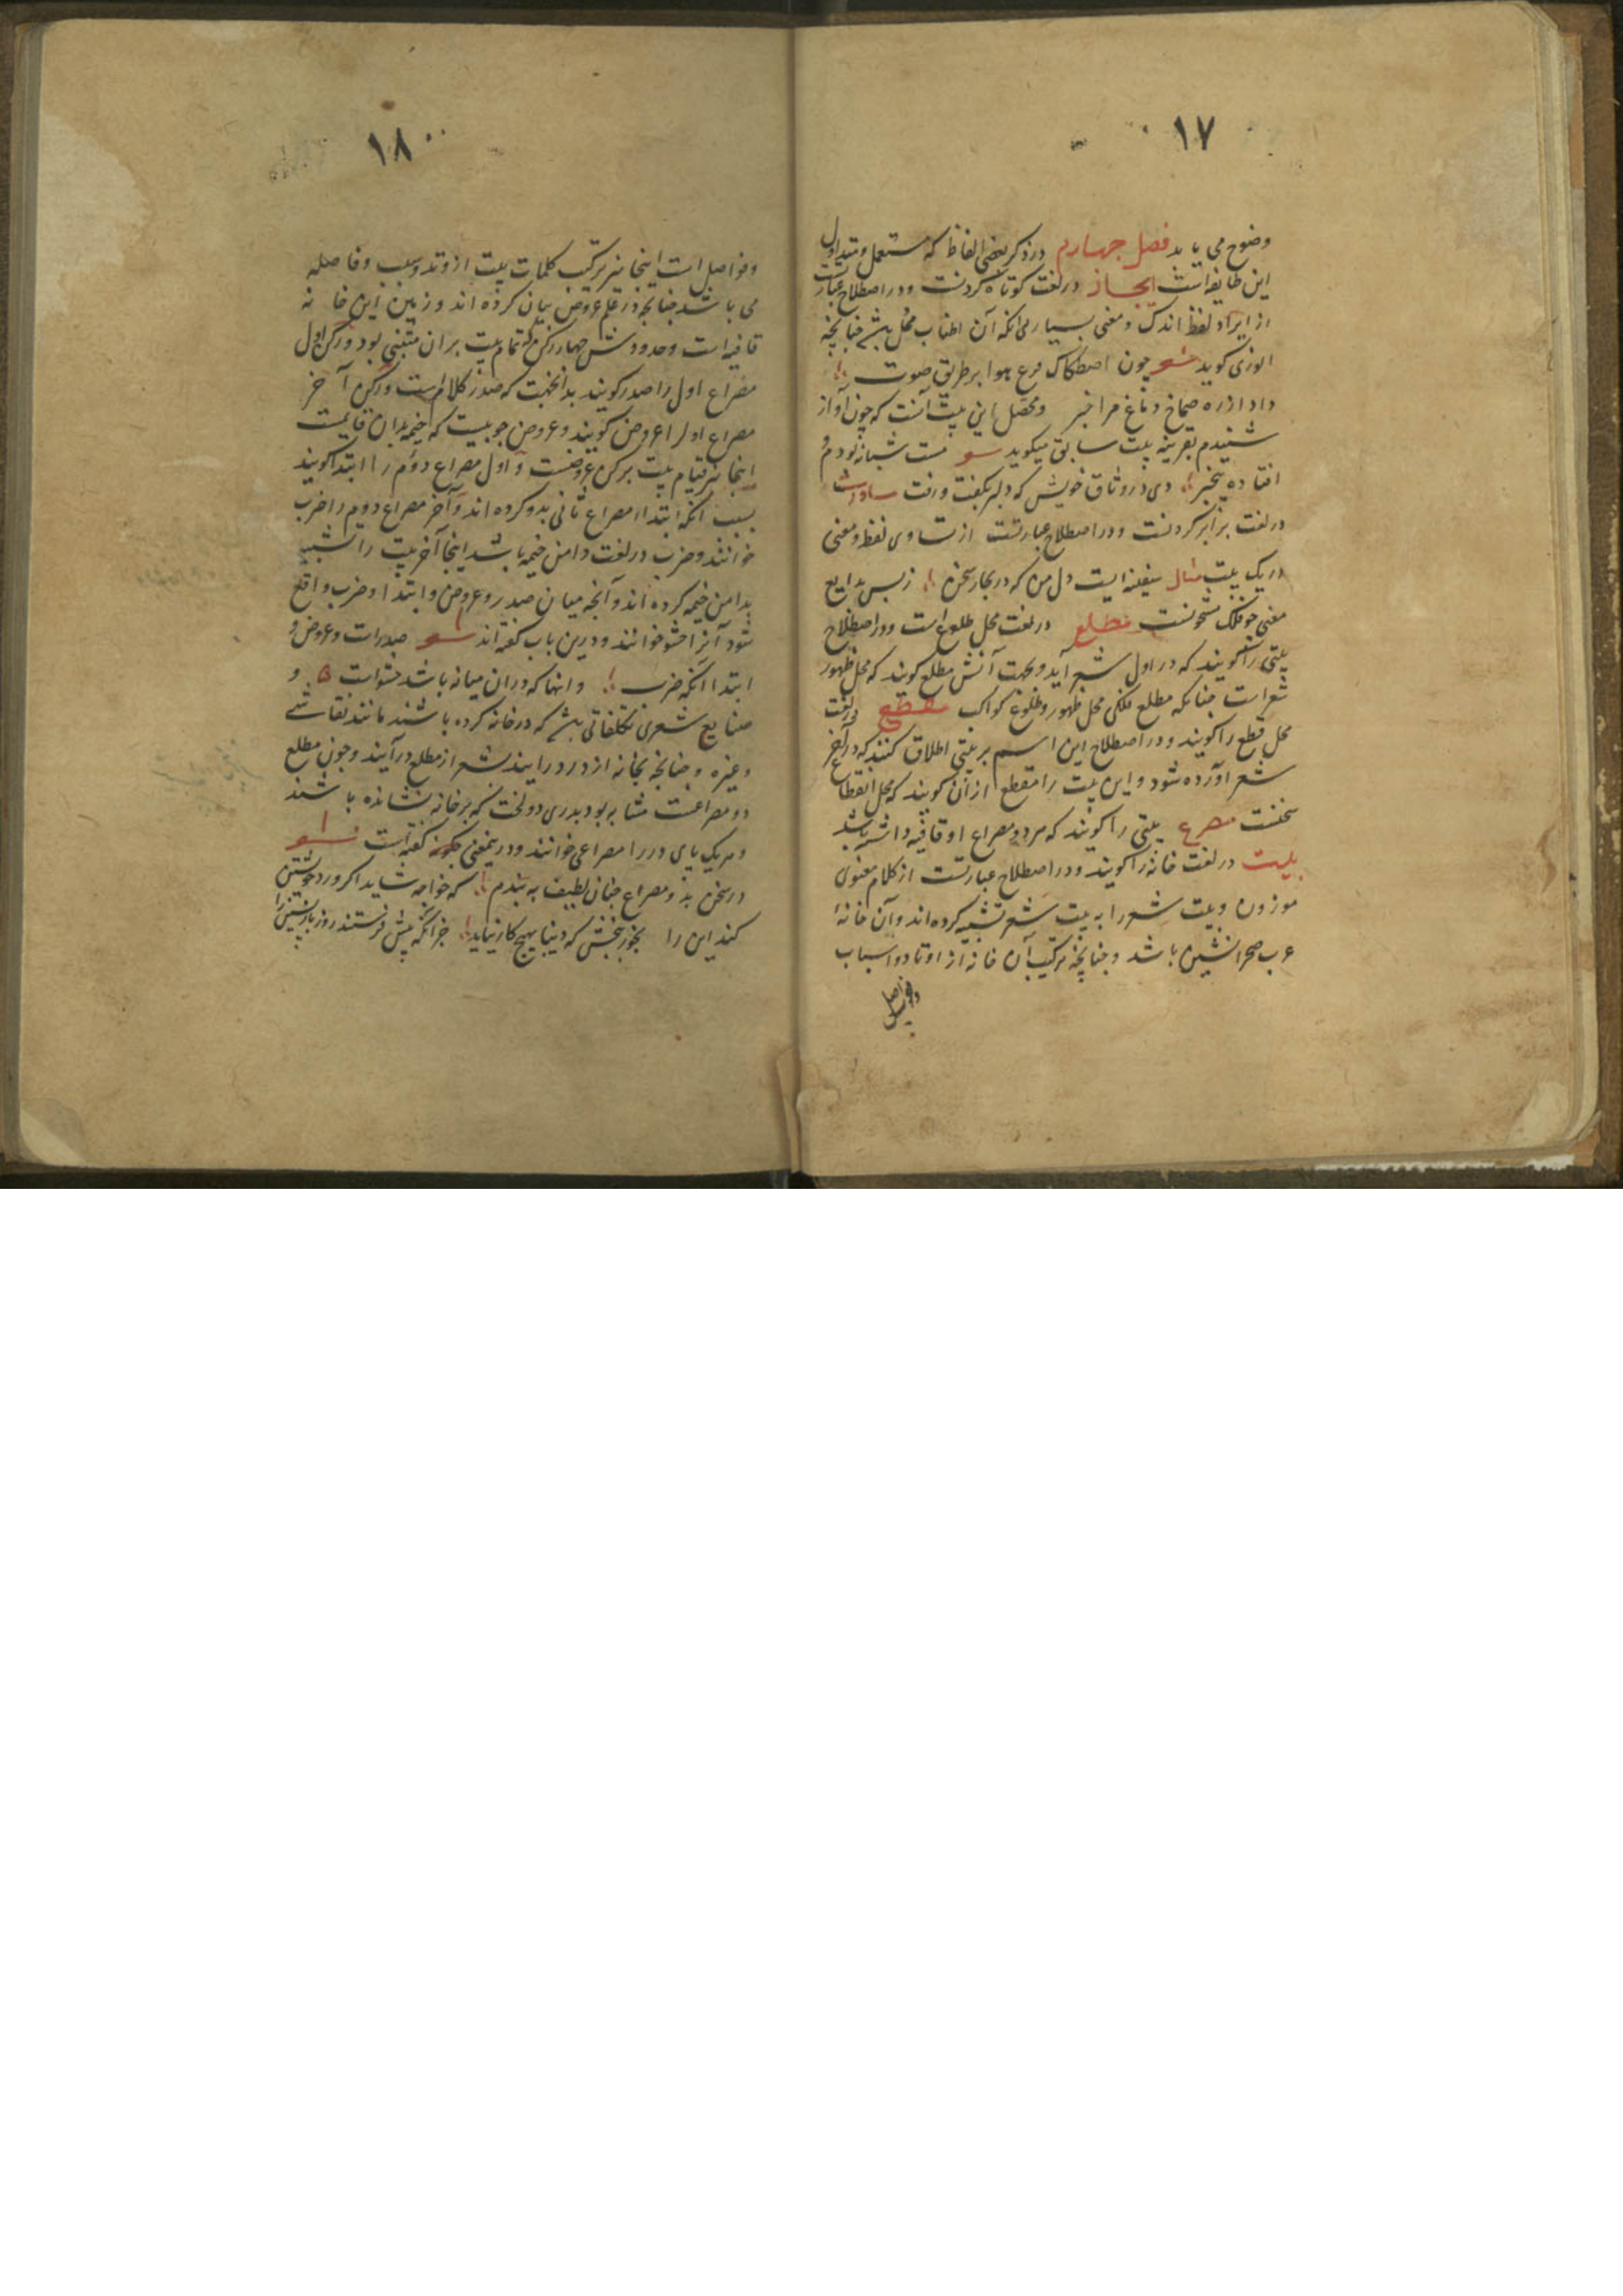 ١٧
وضوح می یابد فصل چهارم در ذکر بعضی الفاظ که مستعمل و متداول
این طایفه است ایجاز در لغت کوتاه کردنست و در اصطلاح عبارتست
از ایراد لفظ اندک و معنی بسیار بی انکه آن اطناب مخل باشد چنانچه
انوری کوید شعر چون اصطکاک قرع هوا بر طریق صوت
داد از ره صماخ دماغ مرا خبر و محصل این بیت آنست که چون آواز
شنیدم بقرینه بیت سابق میکوید شعر مست شبانه بودم و
افتاده بیخبر دی در وثاق خویش که دلبر بکفت ورفت مساوات
در لغت برابر کردنست و در اصطلاح عبارتست از تساوی لفظ و معنی
در یک بیت مثال سفینه ایست دل من که در بحار سخن ز بس بدایع
معنی چو فلک مشحونست مطلع در لغت محل طلوع است و در اصطلاح
بیتی را کویند که در اول شعر آید و بجهت آنش مطلع کویند که محل ظهور
شعر است چنانکه مطلع فلکی محل ظهور و طلوع کواکب مقطع در لغت
محل قطع را کویند و در اصطلاح این اسم بر بیتی اطلاق کنند که در آخر
شعر آورده شود و این بیت را مقطع از آن کویند که محل انقطاع
سخنست مصرع بیتی را کویند که هر دو مصراع او قافیه داشته باشد
بیت در لغت خانه را کویند و در اصطلاح عبارتست از کلام معنوی
موزون و بیت شعر را به بیت شعر تشبیه کرده اند و آن خانهٔ
عرب صحرانشین باشد و چنانچه ترکیب آن خانه از اوتاد و اسباب
و فواصل
١٨
و فواصل است اینجا نیز ترکیب کلمات بیت از وتد و سبب و فاصله
می باشد چنانچه در علم عروض بیان کرده اند و زمین این خانه
قافیه است و حدودش چهار رکن که تمام بیت بران مبتنی بود و رکن اول
مصراع اول را صدر کویند بدانجهت که صدر کلام است و رکن آخر
مصراع اول را عروض کویند و عروض چوبیست که خیمه بدان قایمست
اینجا نیز قیام بیت برکن عروضست و اول مصراع دوم را ابتدا کویند
بسبب آنکه ابتداء مصراع ثانی بدو کرده اند و آخر مصراع دوم را ضرب
خوانند و ضرب در لغت دامن خیمه باشد اینجا آخر بیت را تشبیه
بدامن خیمه کرده اند و آنچه میان صدر و عروض و ابتدا و ضرب واقع
شود آنرا حشو خوانند و درین باب کفته اند شعر صدرات و عروض و
ابتدا انکه ضرب و انها که دران میانه باشد حشوات و
صنایع شعری تکلفاتی باشد که در خانه کرده باشند مانند نقاشی
و غیره و چنانچه بخانه از در درایند بشعر از مطلع درآیند و چون مطلع
دو مصراعست مشابه بود بدری دو لخت که بر خانه نشانده باشند
و هر یک پای در را مصراعی خوانند و درینمعنی نکو کفته است شعر
در سخن بدو مصراع چنان لطیف به بندم که خواجه شاید اکر ورد خویشتن
کند این را بخور ببخش که دنیا بهیچ کار نیاید جز آنکه پیش فرستند روز بازپسین را